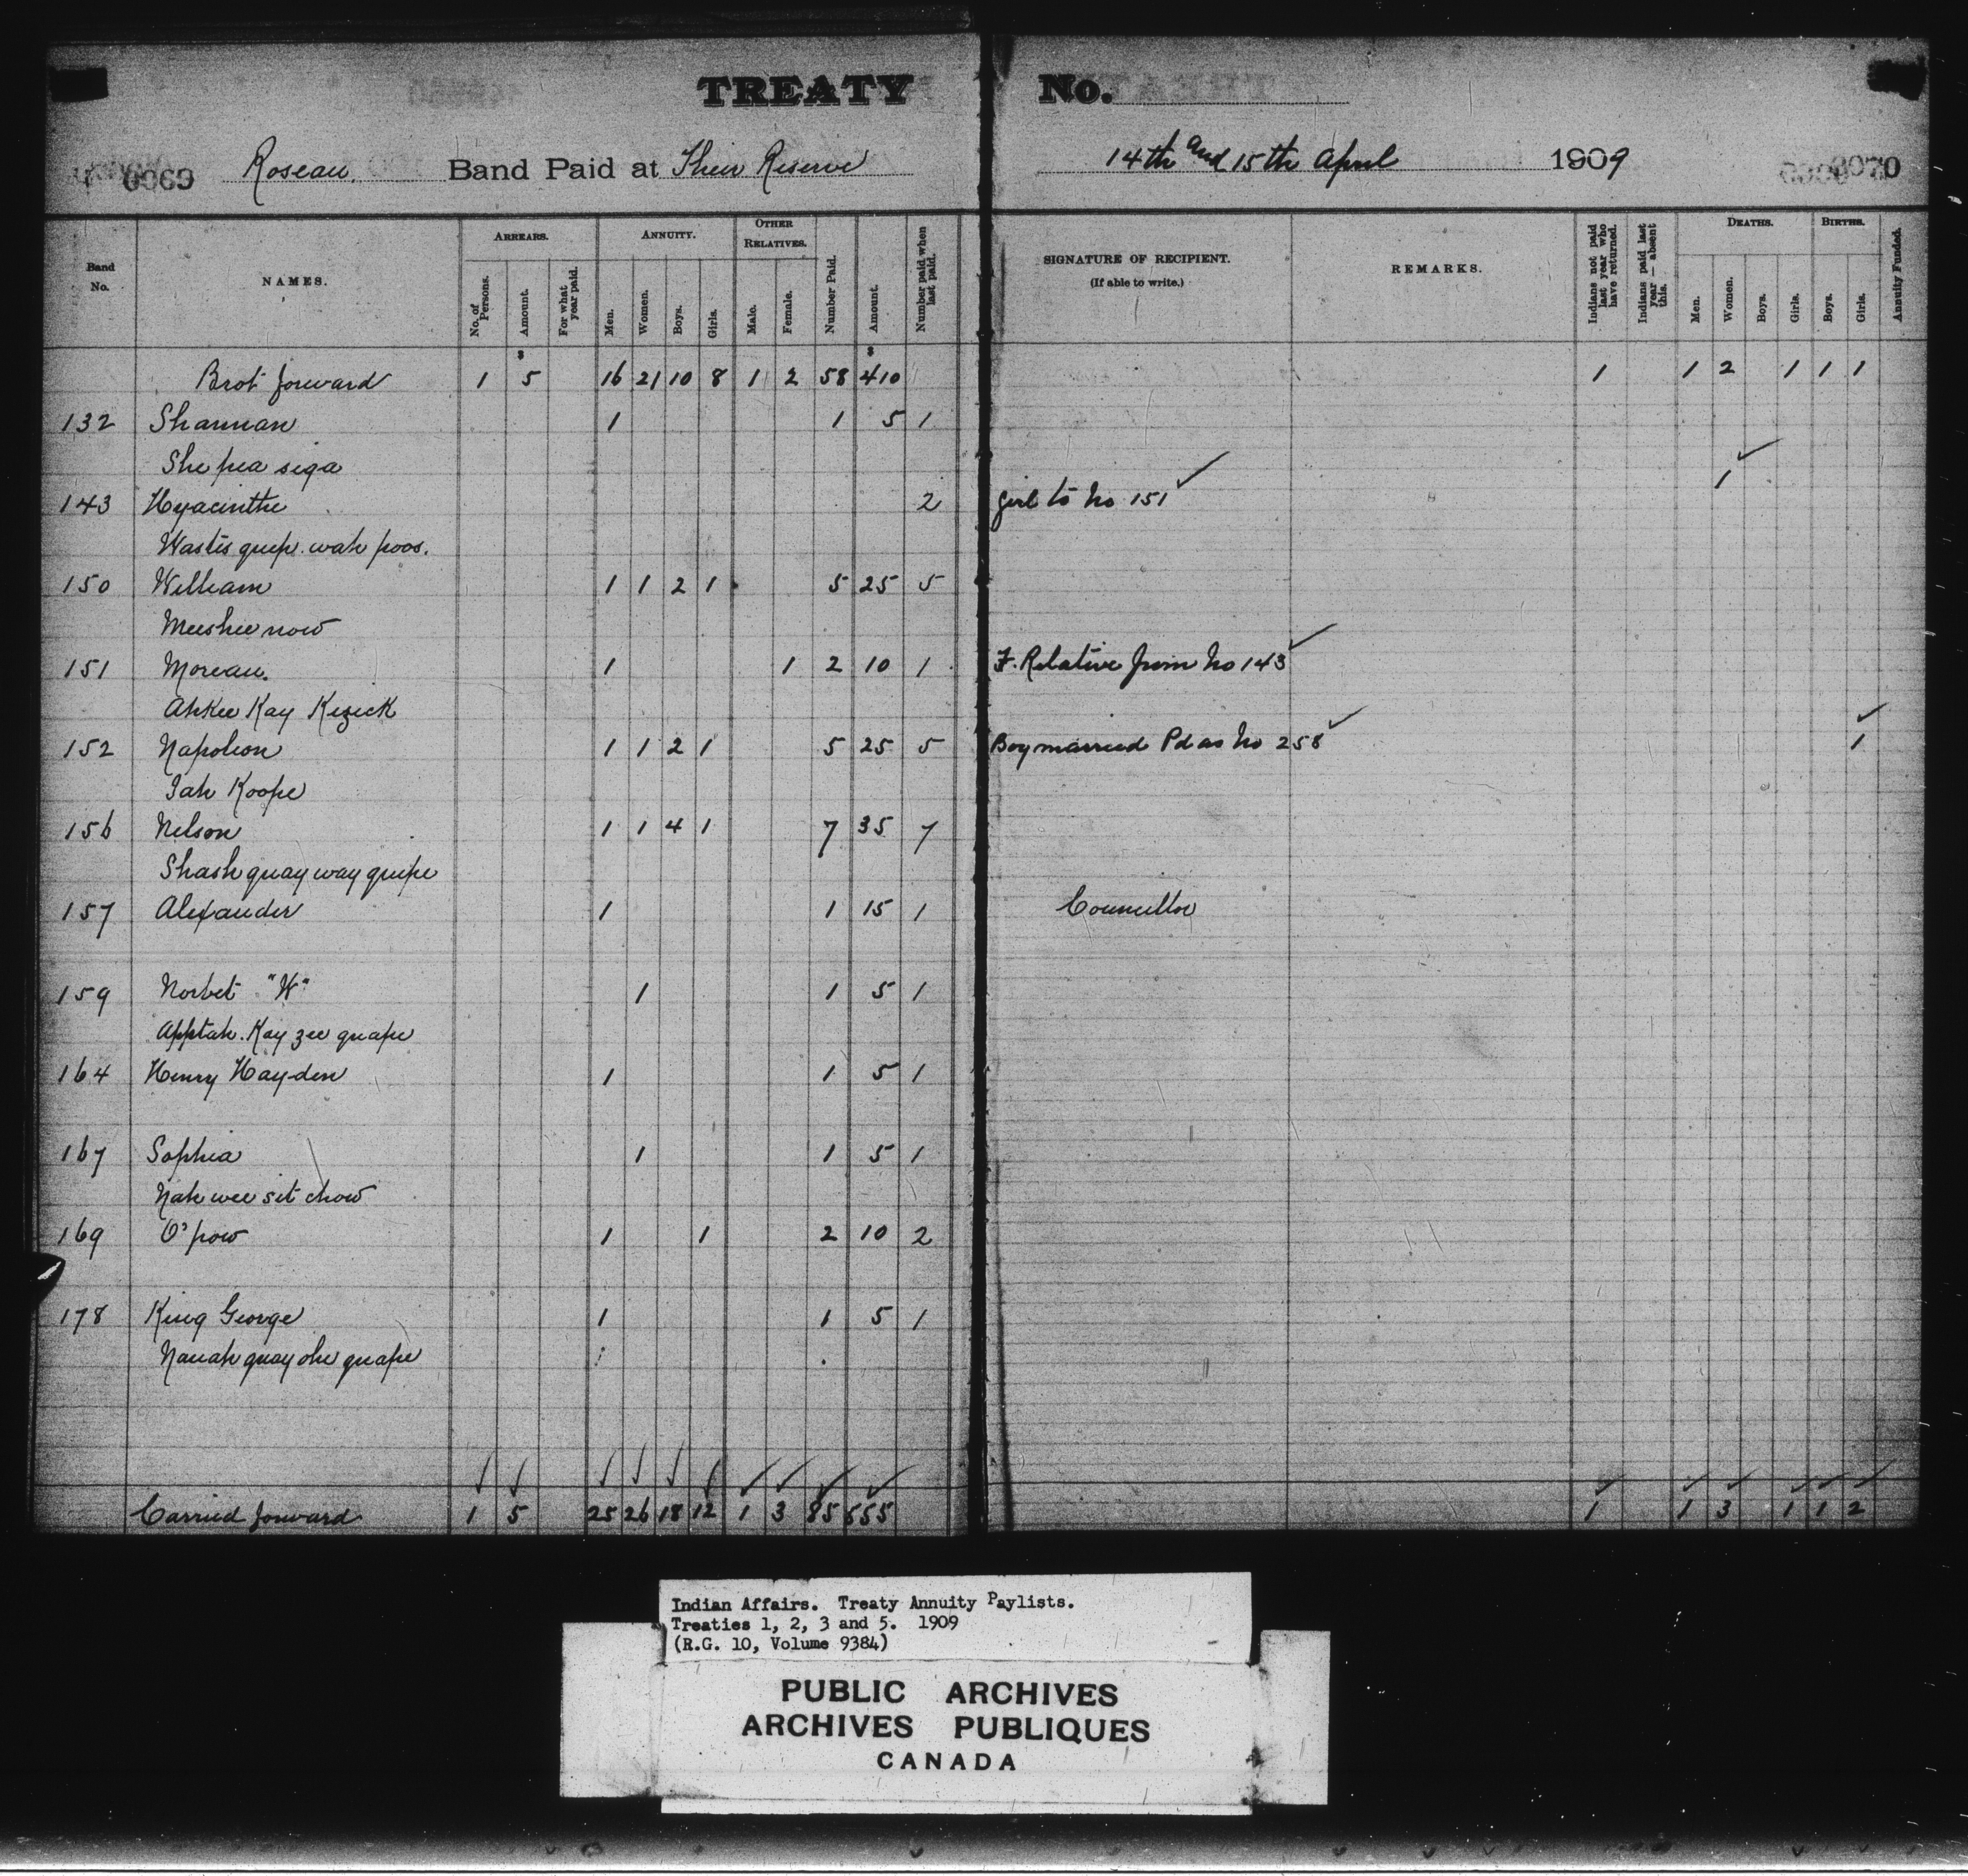 TREATY No.
0069 Roseau Band Paid at Their Reserve 14th and 15th April 1909 0070
Band No. NAMES. ARREARS. ANNUITY. OTHER RELATIVES. Number Paid. Amount. Number paid when last paid. SIGNATURE OF RECIPIENT. (If able to write.) REMARKS. Indians not paid last year who have returned. Indians paid last year — absent this. DEATHS. BIRTHS. Annuity Funded.
No. of Persons. Amount. For what year paid. Men. Women. Boys. Girls. Male. Female. Men. Women. Boys. Girls. Boys. Girls.
$ $
Brot forward 1 5 16 21 10 8 1 2 58 410 1 1 2 1 1 1
132 Shannan 1 1 5 1
She pea siga 1
143 Hyacinthe 2 girl to No 151
Wastis quep. wah poos.
150 William 1 1 2 1 5 25 5
Meeshee now
151 Moreau. 1 1 2 10 1 F. Relative from No 143
Ahkee Kay Kezick
152 Napoleon 1 1 2 1 5 25 5 Boy married Pd as No 258 1
Jah Koope
156 Nelson 1 1 4 1 7 35 7
Shash quay way quipe
157 Alexander 1 1 15 1 Councillor
159 Norbet "W" 1 1 5 1
Apptah. Kay zee quape
164 Henry Hayden 1 1 5 1
167 Sophia 1 1 5 1
Nah wee sit chow
169 O'pow 1 1 2 10 2
178 King George 1 1 5 1
Nanah quay ohe quape
Carried forward 1 5 25 26 18 12 1 3 85 555 1 1 3 1 1 2
Indian Affairs. Treaty Annuity Paylists.
Treaties 1, 2, 3 and 5. 1909
(R.G. 10, Volume 9384)
PUBLIC ARCHIVES
ARCHIVES PUBLIQUES
CANADA